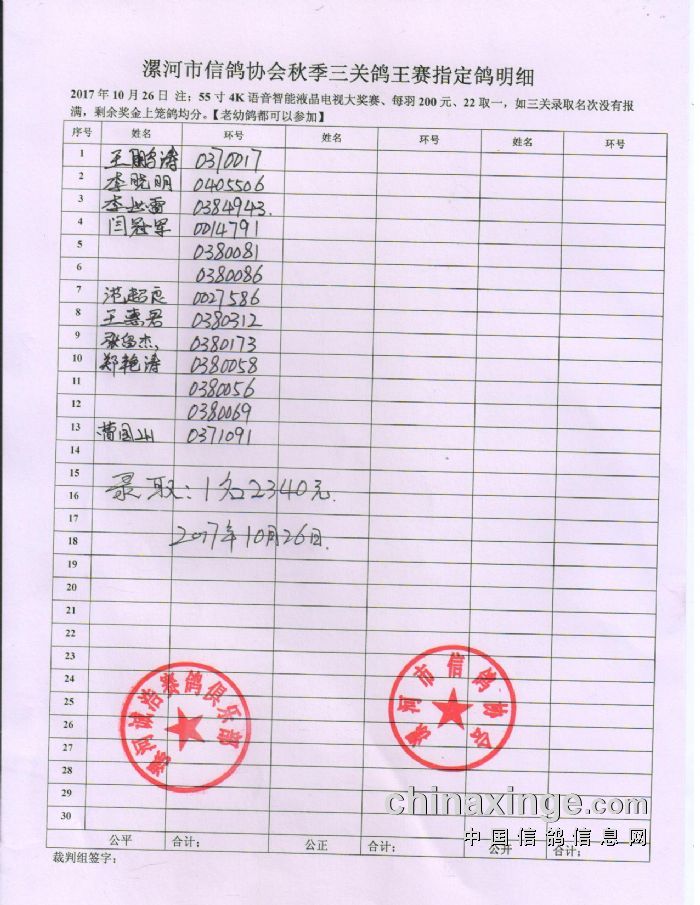 漯河市信鸽协会秋季三关鸽王赛指定鸽明细
2017 年 10 月 26 日 注；55 寸 4K 语音智能液晶电视大奖赛、每羽 200 元、22 取一，如三关录取名次没有报
满，剩余奖金上笼鸽均分。【老幼鸽都可以参加】
序号 姓名 环号 姓名 环号 姓名 环号
1 王鹏涛 0370017
2 李晓明 0405506
3 0384943
4 闫冠军 0014791
5 0380081
6 0380086
7 范超良 0027586
8 王惠君 0380312
9 0380173
10 郑艳涛 0380058
11 0380056
12 0380069
13 曹国 0371091
14
15
16 录取：1名2340元.
17
18 2017年10月26日.
19
20
21
22
23
24
25
26
27
28
29
30
漯河诚浩赛鸽俱乐部
漯河市信鸽协会
chinaxinge.com
中国信鸽信息网
公平 合计； 公正 合计； 公开 合计；
裁判组签字：